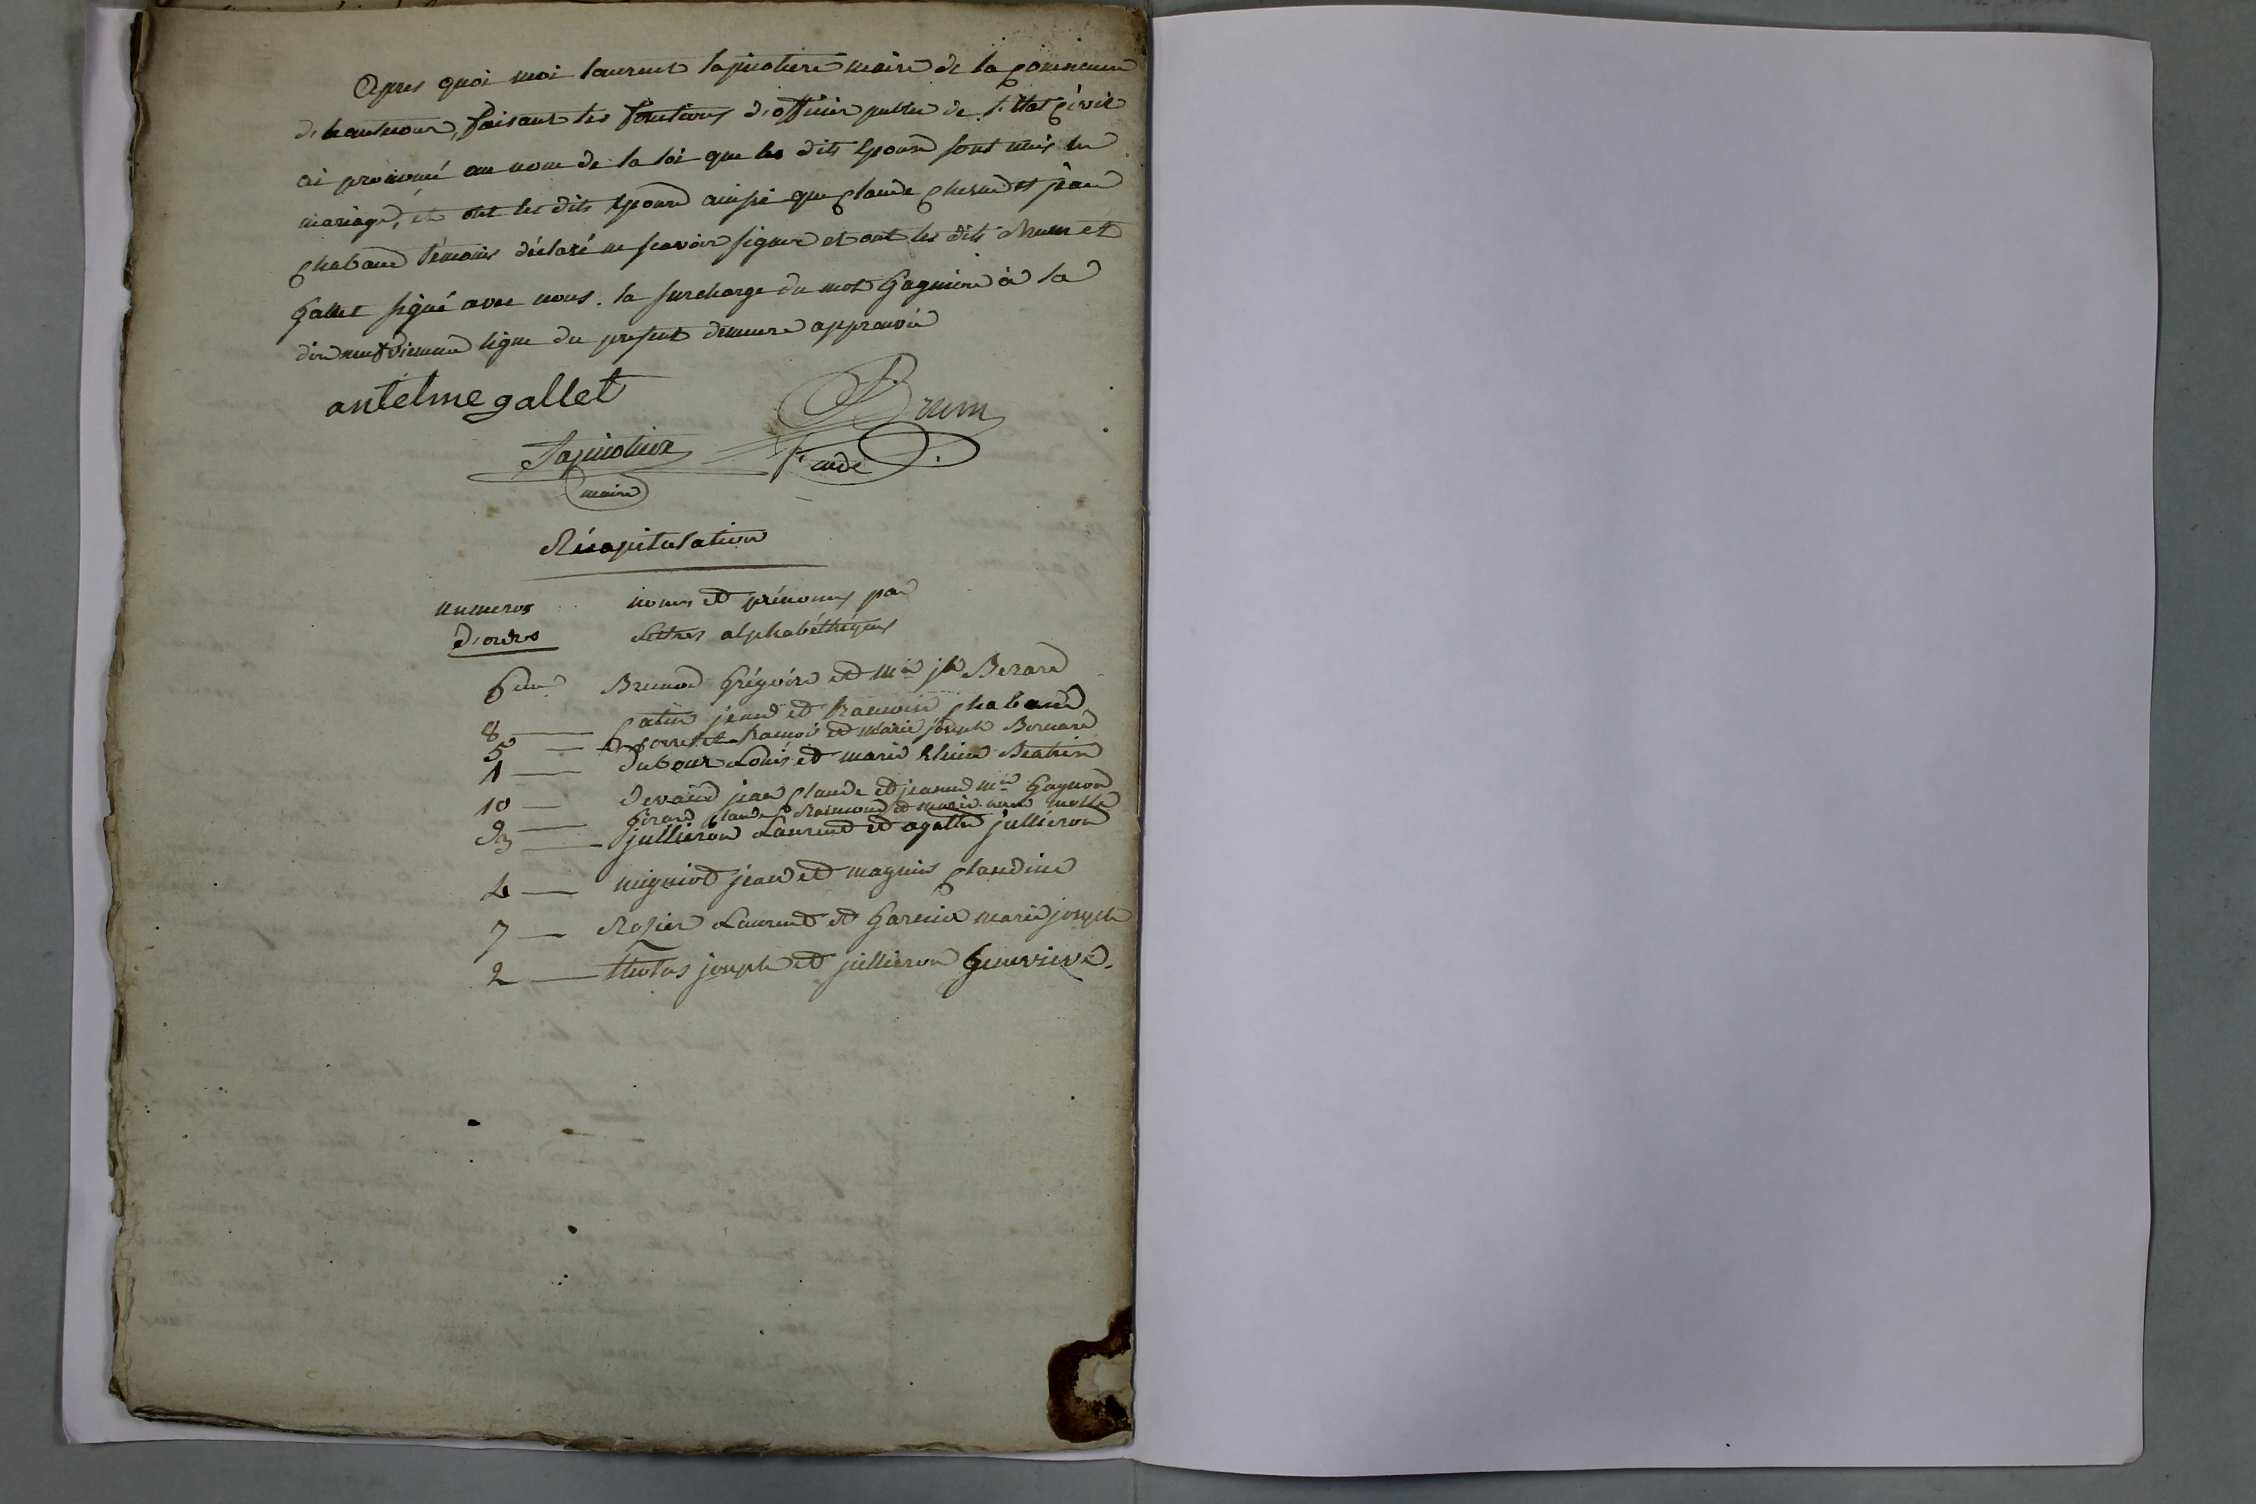 Apres quoi moi laurent lapierre maire de la Commune
de hautecour, faisant les fonctions d'officier public de l'Etat Civil
ai prononcé au nom de la loi que les dits Epoux sont unis en
mariage, et ont les dits Epoux ainsi que Claude et jean
Chabaud témoins déclaré ne scavoir signer et ont les dits Brun et
Gallet signé avec nous. la surcharge du mot à la
dix neufvieme ligne du present demeure approuvée
antelme gallet
Brun
maire
Récapitulation
numeros noms et prénoms par
d'ordre Lettres alphabéthiques
6 Brunod Grégoire et Mie jph Berard
8 Catin jean et Chabaud
5 et marie joseph Bernard
1 Dubour Louis et marie
10 Devaud jean Claude et jeanne Mie Gagnon
9 Girard Claude et marie
3 jullieron Laurent et agathe jullieron
4 migniot jean et magnin Claudine
7 Rosier Laurent et Garnier marie joseph
2 joseph et jullieron Genevieve.